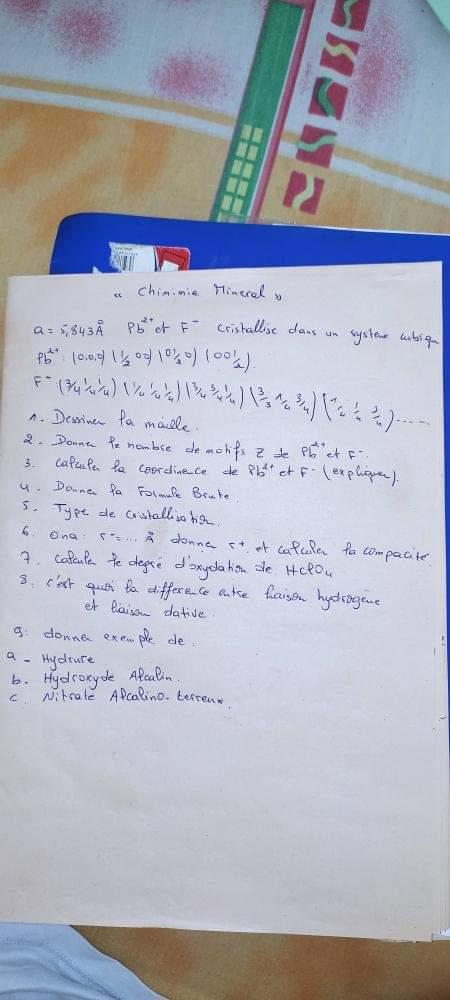 « Chimimie Mineral »
a = 5,843 Å Pb²⁺ et F⁻ cristallise dans un systeme cubique
Pb²⁺ (0,0,0) (1/2 0 0) (0 1/2 0) (0 0 1/2).
F⁻ (3/4 1/4 1/4) (1/4 1/4 1/4) (3/4 3/4 1/4) (3/3 1/4 3/4) (1/4 1/4 3/4) .....
1. Dessiner la maille.
2. Donner le nombre de motifs Z de Pb²⁺ et F⁻.
3. Calculer la coordinence de Pb²⁺ et F⁻ (expliquer).
4. Donner la Formule Brute.
5. Type de cristallisation.
6. Ona: r⁻=... Å donner r⁺ et calculer la compacité.
7. Calculer le degré d'oxydation de HClO₄
8. c'est quoi la difference entre liaison hydrogène
et liaison dative.
9. donner exemple de:
a - Hydrure
b. Hydroxyde Alcalin.
c. Nitrate Alcalino-terreux.